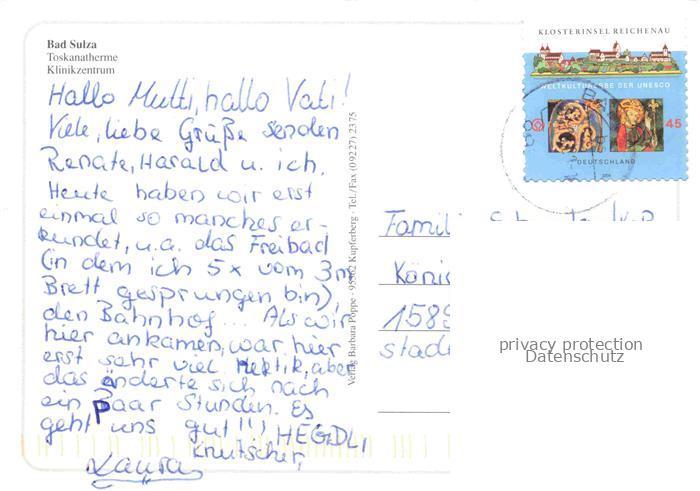 Bad Sulza
Toskanatherme
Klinikzentrum
Hallo Mutti, hallo Vati!
Viele, liebe Grüße senden
Renate, Harald u. ich.
Heute haben wir erst
einmal so manches er-
kundet, u.a. das Freibad
(in dem ich 5x vom 3m
Brett gesprungen bin),
den Bahnhof... Als wir
hier ankamen, war hier
erst sehr viel Hektik, aber
das änderte sich nach
ein Paar Stunden. Es
geht uns gut!!! HEGDL,
Knutscher,
Laura
Verlag Barbara Poppe · 95362 Kupferberg · Tel./Fax (09227) 2375
KLOSTERINSEL REICHENAU
WELTKULTURERBE DER UNESCO
45
DEUTSCHLAND
Famili
Köni
1589
stad
privacy protection
Datenschutz